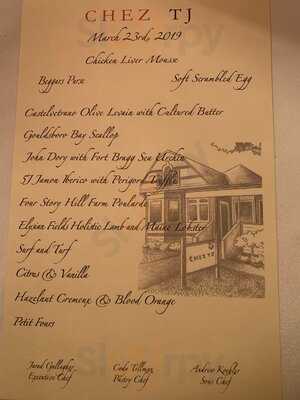 CHEZ TJ
March 23rd, 2019
Chicken Liver Mousse
Beggars Purse Soft Scrambled Egg
Castelvetrano Olive Levain with Cultured Butter
Gouldsboro Bay Scallop
John Dory with Fort Bragg Sea Urchin
5J Jamon Iberico with Perigord Truffle
Four Story Hill Farm Poularde
Elysian Fields Holistic Lamb and Maine Lobster
Surf and Turf
Citrus & Vanilla
Hazelnut Cremeux & Blood Orange
Petit Fours
CHEZ TJ
Jared Gallagher Cody Tillman Andrew Koehler
Executive Chef Pastry Chef Sous Chef